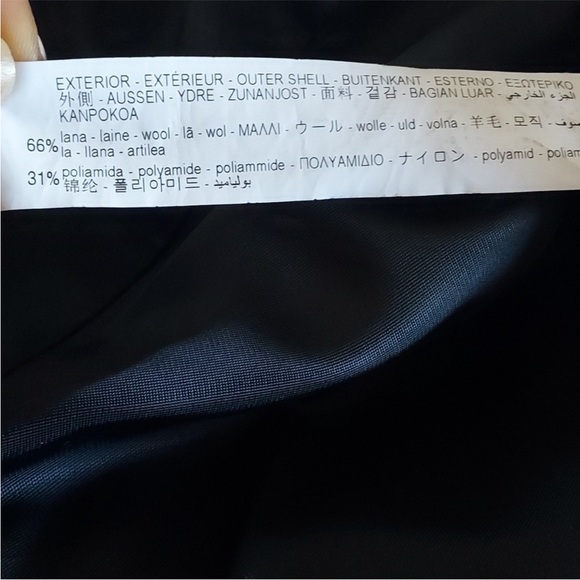 EXTERIOR - EXTÉRIEUR - OUTER SHELL - BUITENKANT - ESTERNO - ΕΞΩΤΕΡΙΚΟ
外側 - AUSSEN - YDRE - ZUNANJOST - 面料 - 겉감 - BAGIAN LUAR - الجزء الخارجي -
KANPOKOA
66% lana - laine - wool - lã - wol - ΜΑΛΛΙ - ウール - wolle - uld - volna - 羊毛 - 모직 - صوف
la - llana - artilea
31% poliamida - polyamide - poliammide - ΠΟΛΥΑΜΙΔΙΟ - ナイロン - polyamid -
锦纶 - 폴리아미드 - بولياميد